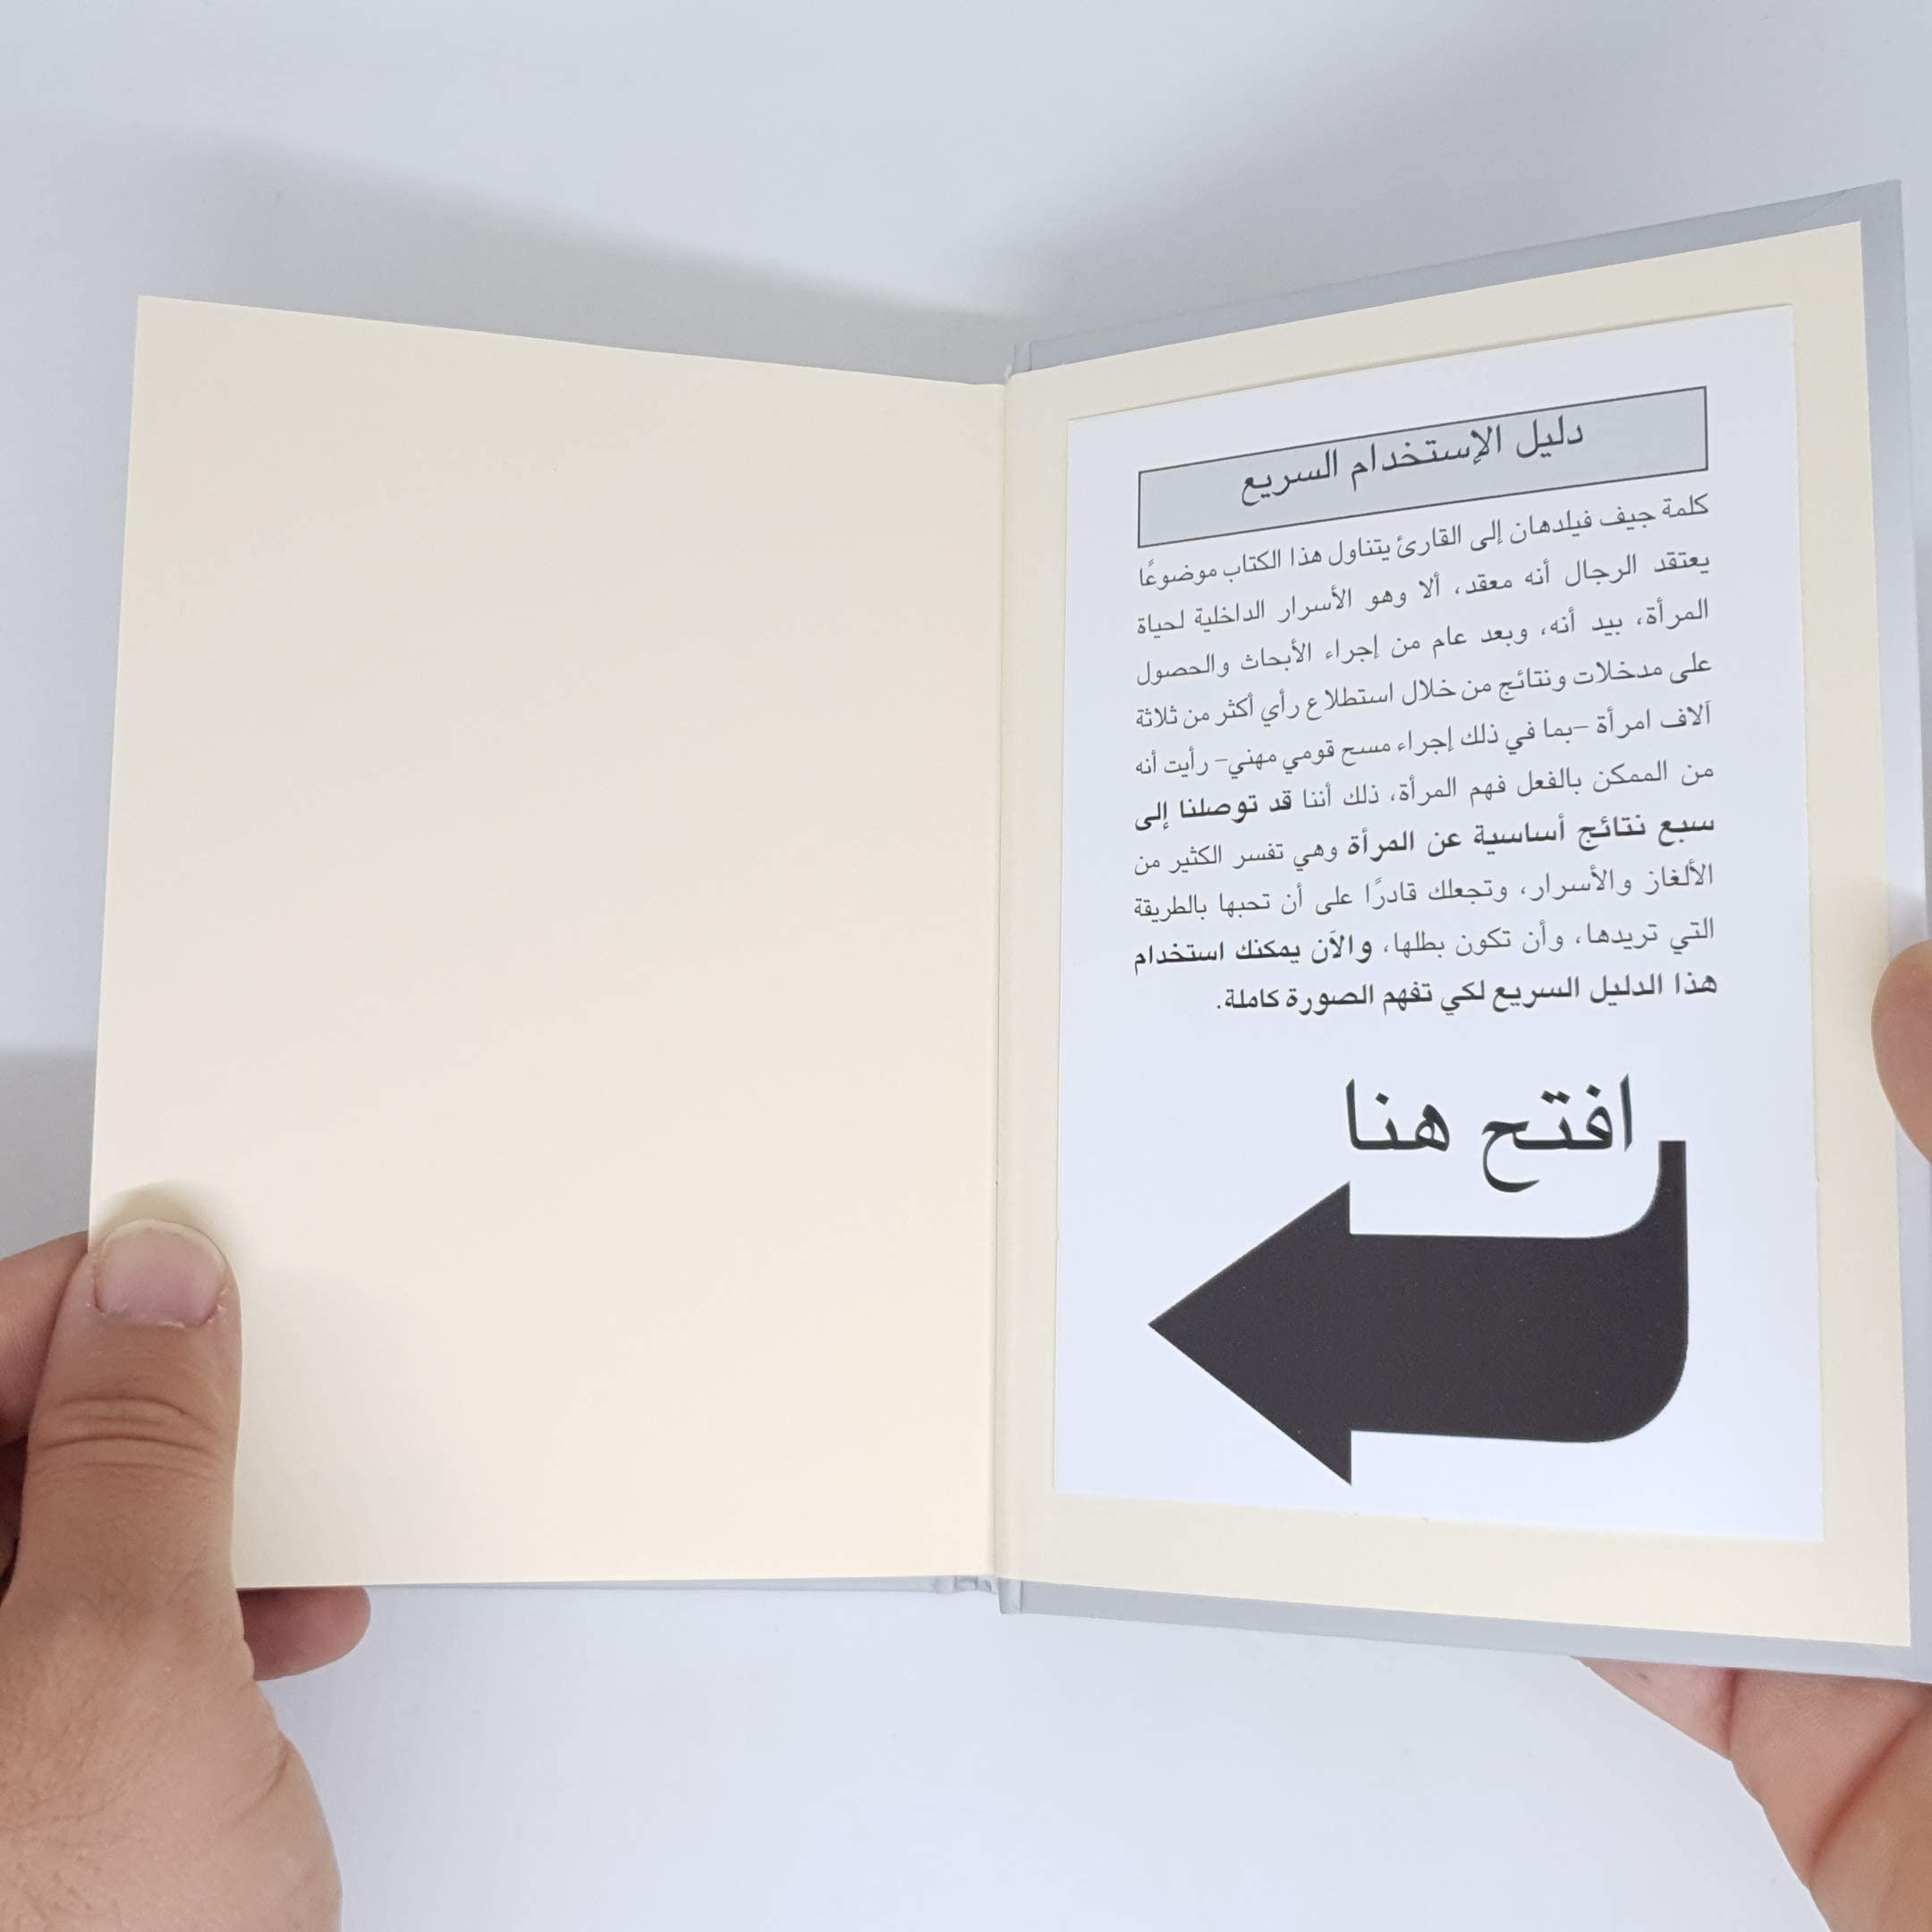 دليل الإستخدام السريع
كلمة جيف فيلدهان إلى القارئ يتناول هذا الكتاب موضوعًا
يعتقد الرجال أنه معقد، ألا وهو الأسرار الداخلية لحياة
المرأة، بيد أنه، وبعد عام من إجراء الأبحاث والحصول
على مدخلات ونتائج من خلال استطلاع رأي أكثر من ثلاثة
آلاف امرأة -بما في ذلك إجراء مسح قومي مهني- رأيت أنه
من الممكن بالفعل فهم المرأة، ذلك أننا قد توصلنا إلى
سبع نتائج أساسية عن المرأة وهي تفسر الكثير من
الألغاز والأسرار، وتجعلك قادرًا على أن تحبها بالطريقة
التي تريدها، وأن تكون بطلها، والآن يمكنك استخدام
هذا الدليل السريع لكي تفهم الصورة كاملة.
افتح هنا